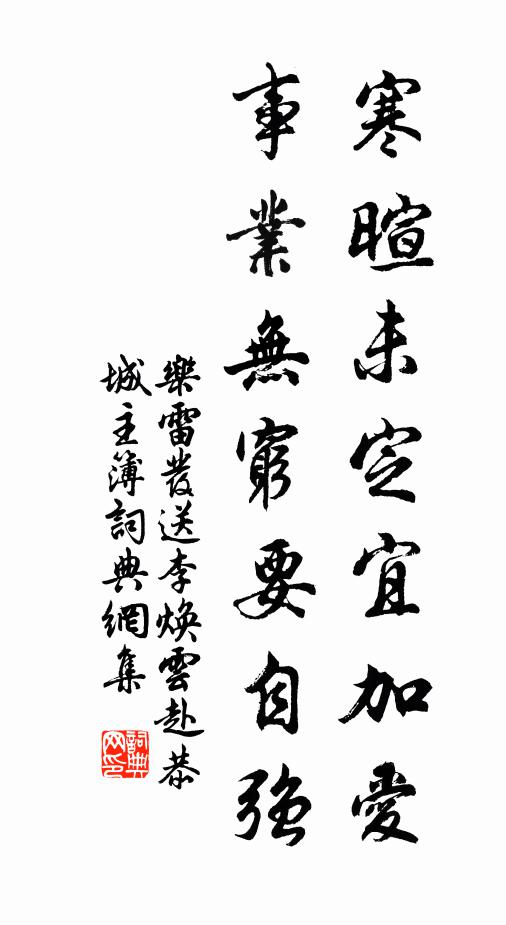 寒暄未定宜加愛
事業無窮要自強
樂雷發送李煥雲赴恭
城主簿詞典網集
詞典网印